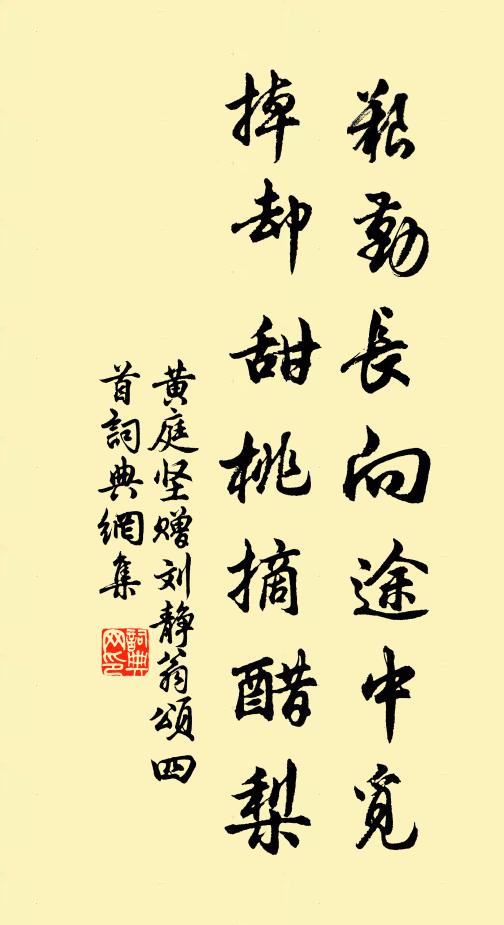 艱勤長向途中覓
掉却甜桃摘醋梨
黄庭坚赠刘静翁頌四
首詞典網集
詞典
网印